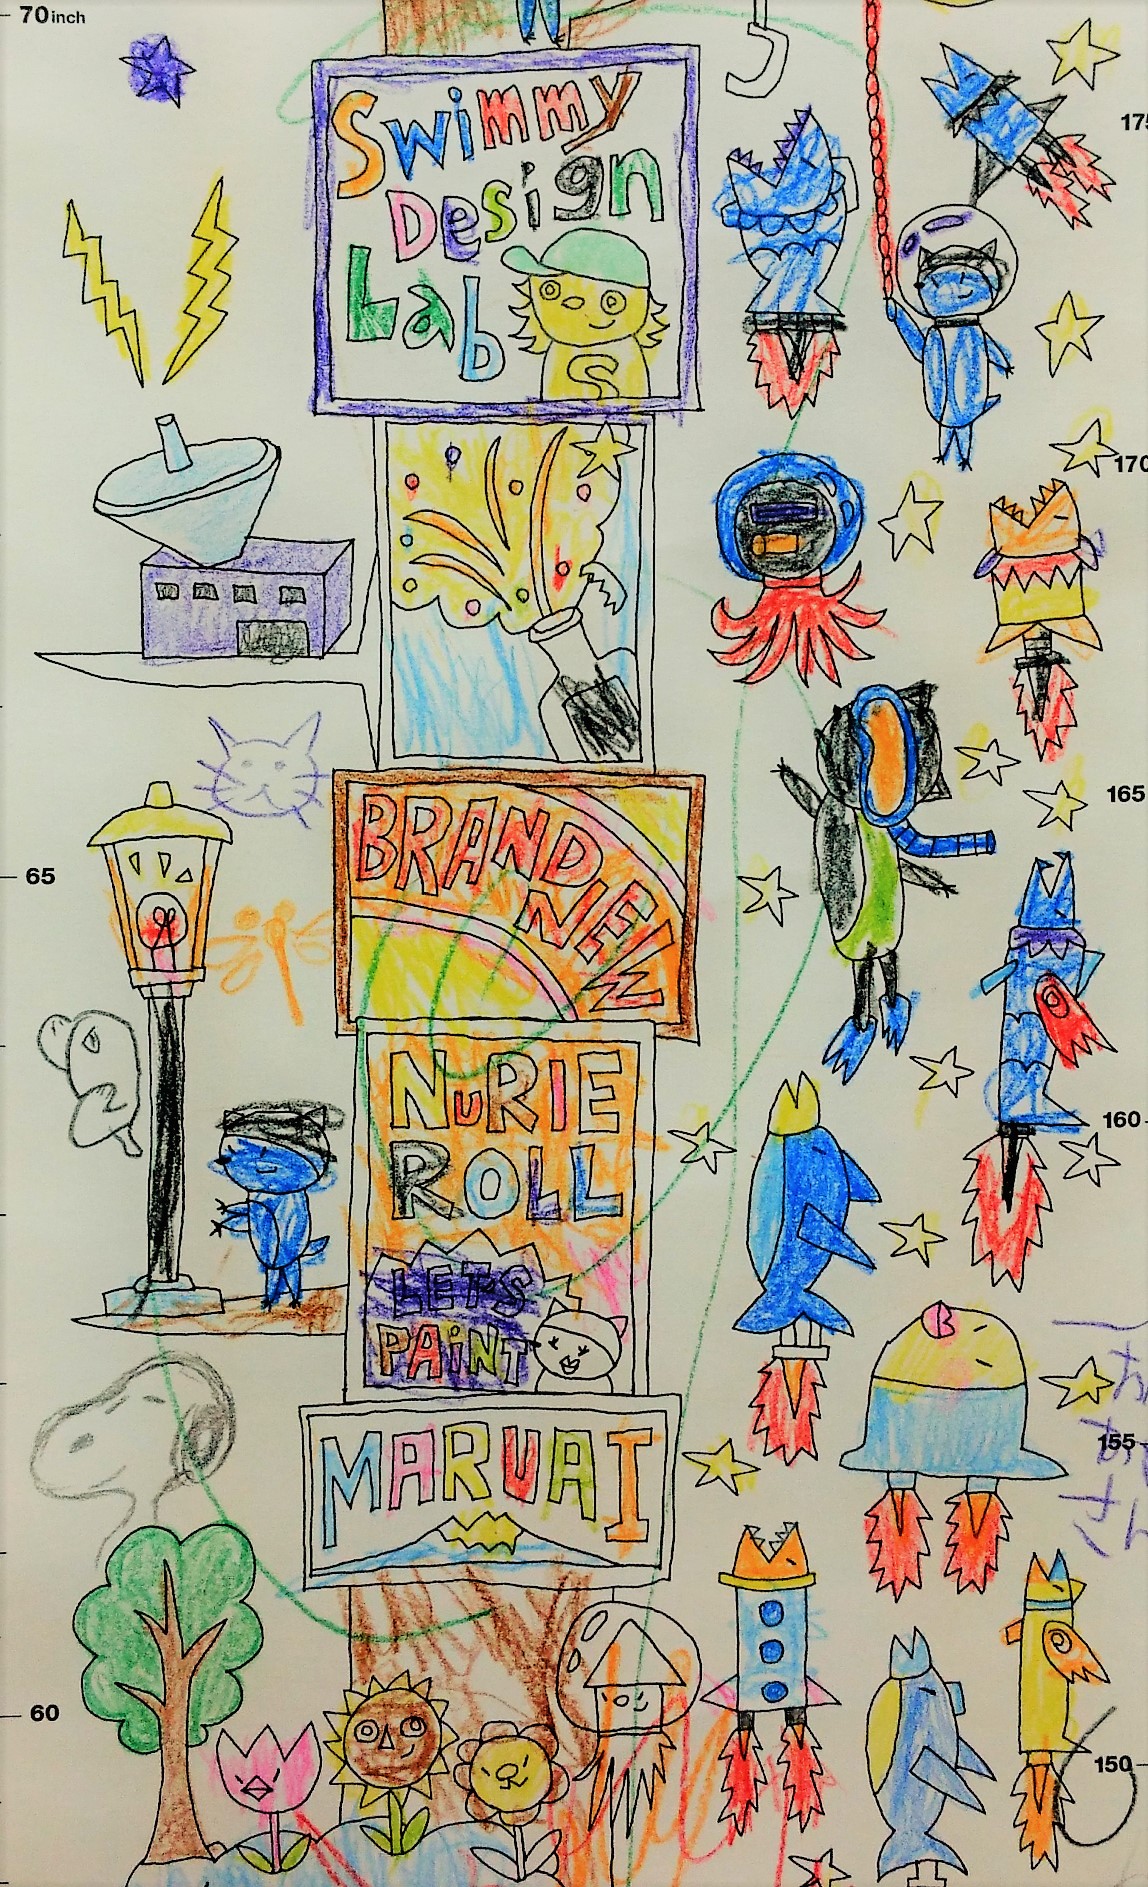 70inch
Swimmy
Design
Lab
S
170
BRAND
NEW
165
65
NuRIE
ROLL
160
LET'S
PAiNT
B
155
MARUAI
60
150